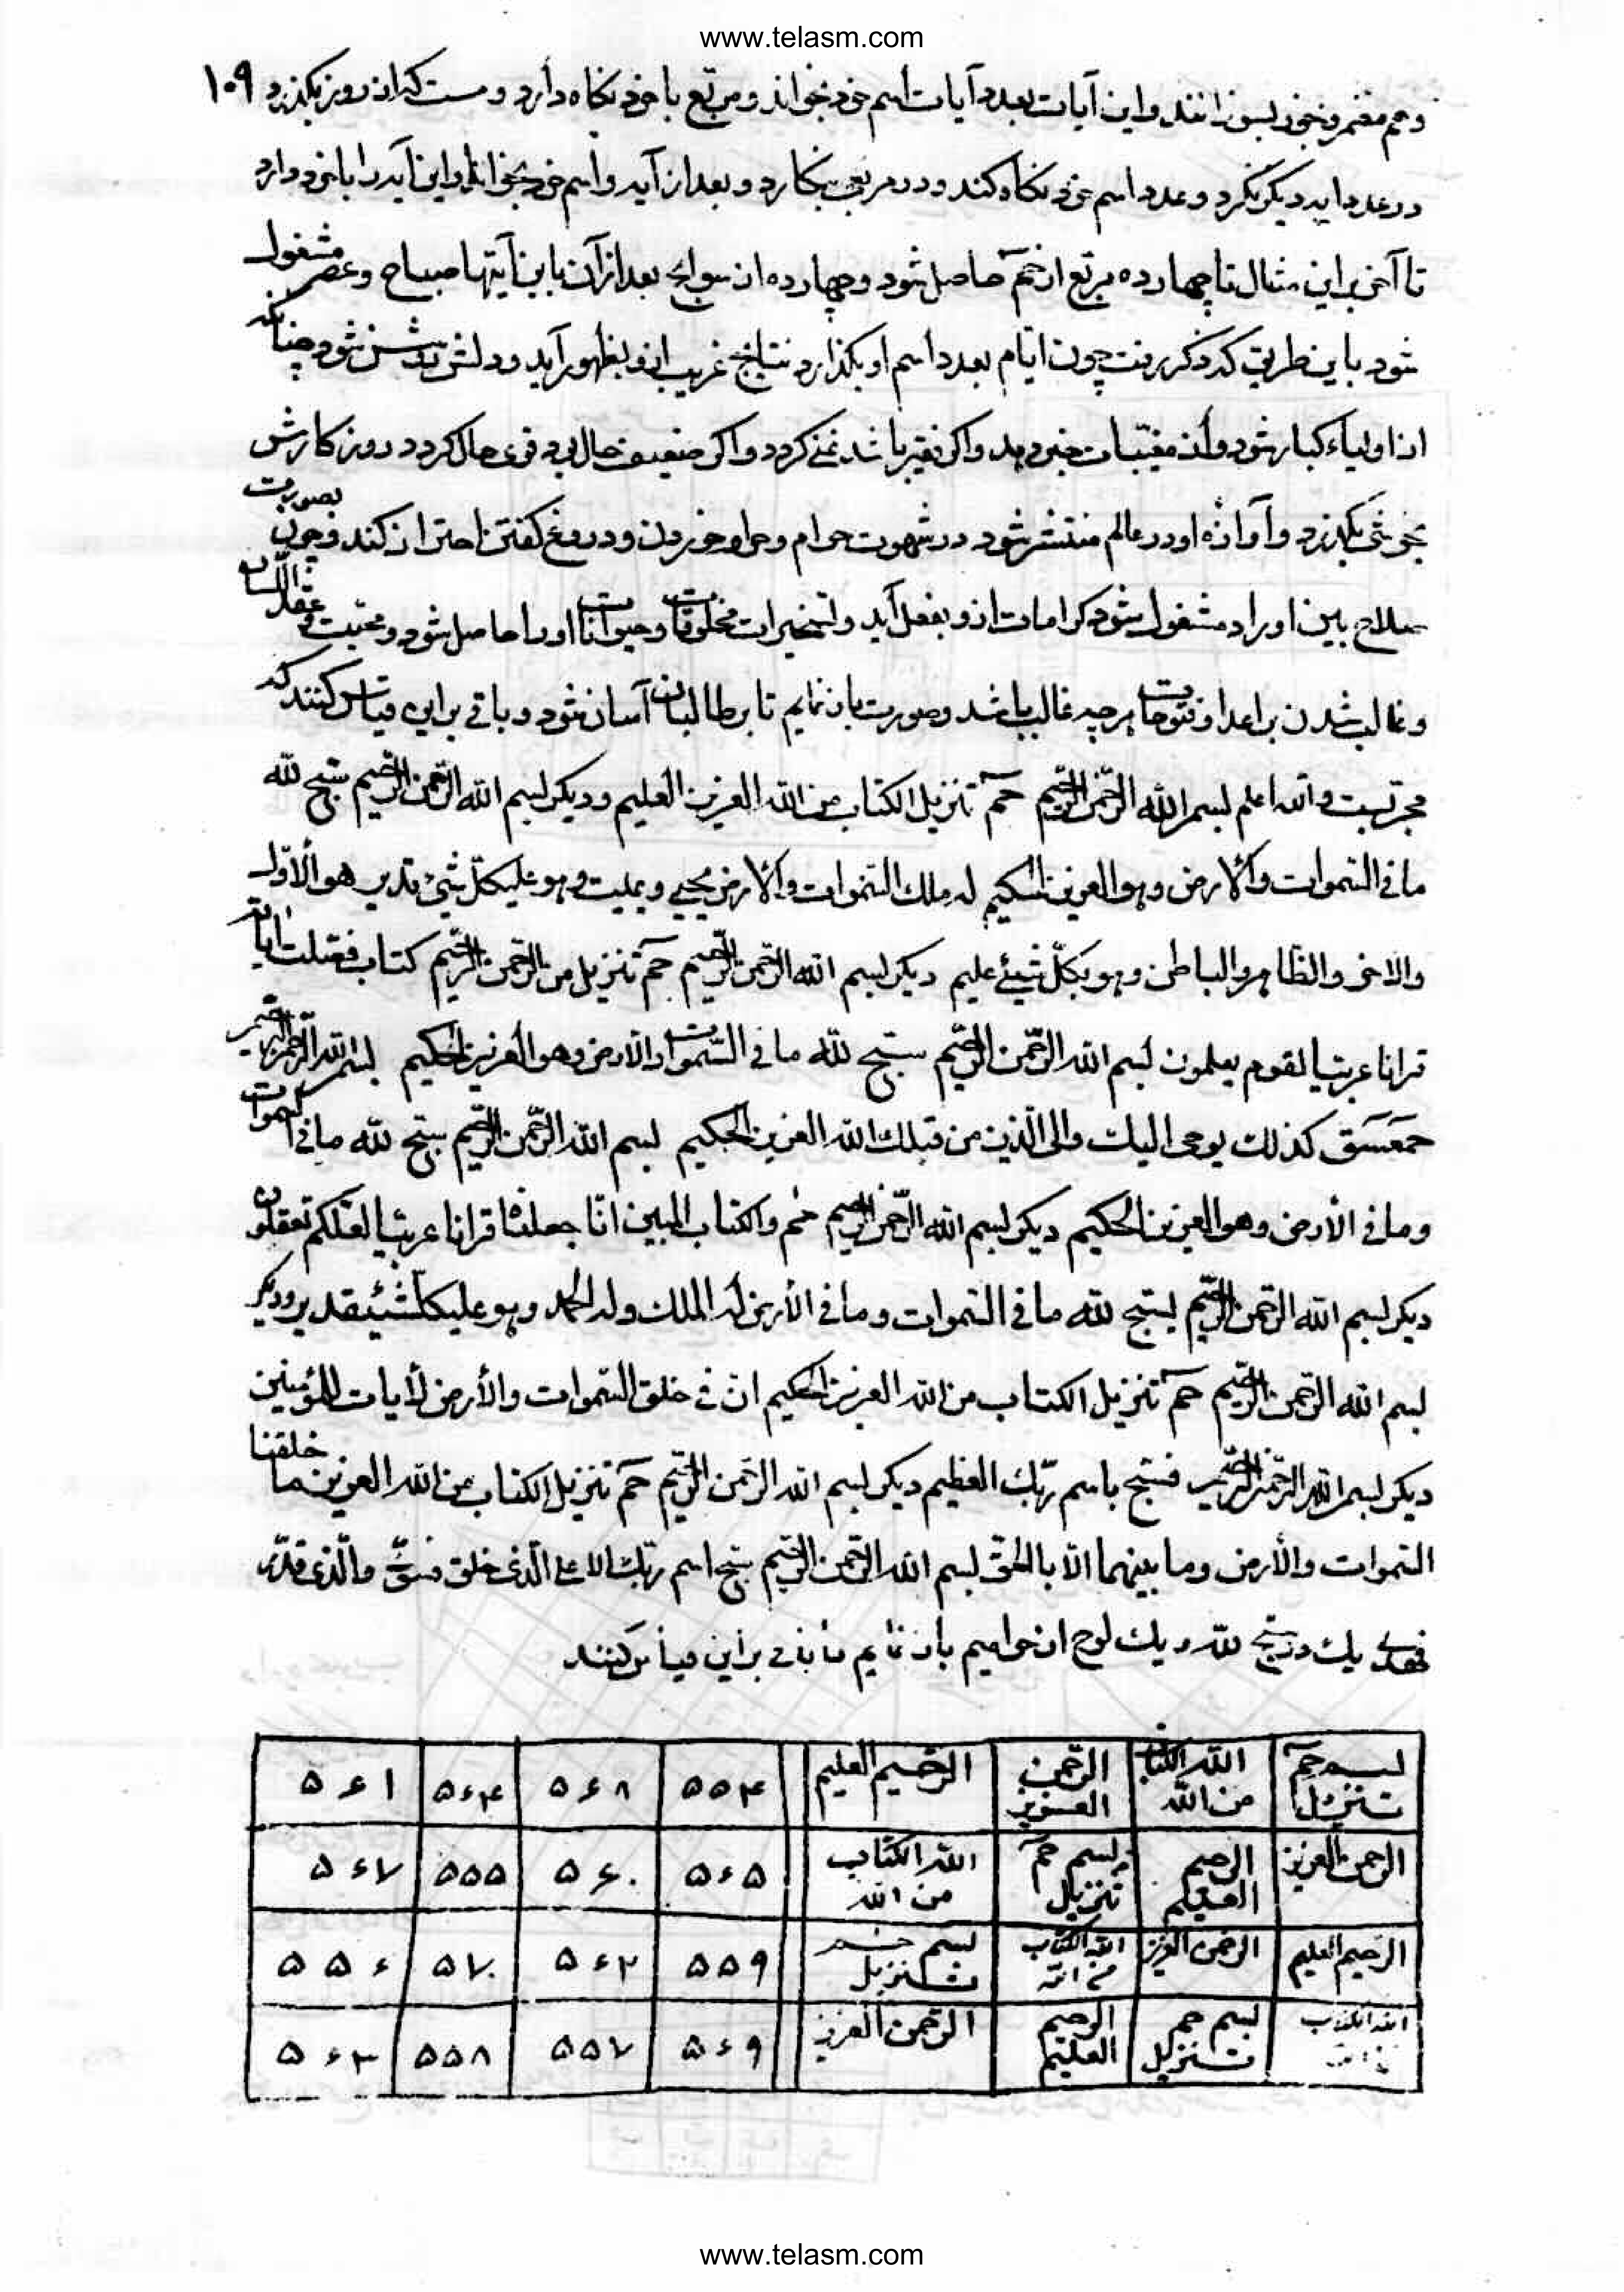 www.telasm.com
۱۰۹
و این آیات بعدد آیات اسم خود بخواند و مربع با خود نگاه دارد و مدت که از روز بگذرد
در عدد آیه دیگر نگرد و عدد اسم خود نگاه کند و در مربع بنگارد و بعد از آیه و اسم خود بخواند و این آیه را با خود دارد
تا آخر براین مثال تا چهارده مربع از حم حاصل شود و چهارده از سوانح بعد از آن باین آیتها صباح و عصر مشغول
شود باین طریق که ذکر رفت چون ایام بعدد اسم او بگذارد نتایج غریب ازو بظهور آید و دلش روشن شود چنانکه
از اولیاء کبار شود و از مغیبات خبر دهد و اگر فقیر باشد غنی گردد و اگر ضعیف حال بود قوی حال گردد و روز کارش
بخوشی بگذرد و آوازه او در عالم منتشر شود در شهوت حرام و حرام خوردن و دروغ گفتن احتراز کند و چون بصورت
صلاح باین اوراد مشغول شود کرامات ازو بفعل آید و تسخیرات مخلوقات و حیوانات او را حاصل شود و محبت و عقد اللسان
و غالب شدن بر اعدا و فتوحات هرچه غالب باشد و صورت باز نمایم تا بر طالبان آسان شود و باقی براین قیاس کنند که
مجربست والله اعلم بسم الله الرحمن الرحیم حم تنزیل الکتاب من الله العزیز العلیم و دیگر بسم الله الرحمن الرحیم سبح لله
ما فی السموات والارض وهو العزیز الحکیم له ملک السموات والارض یحیی و یمیت وهو علیکل شیء قدیر هو الاول
والاخر والظاهر والباطن وهو بکل شیئ علیم دیگر بسم الله الرحمن الرحیم حم تنزیل من الرحمن الرحیم کتاب فصلت ایاته
قرانا عربیا لقوم یعلمون بسم الله الرحمن الرحیم سبح لله ما فی السموات والارض وهو العزیز الحکیم بسم الله الرحمن الرحیم
حمعسق کذلک یوحی الیک والی الذین من قبلک الله العزیز الحکیم بسم الله الرحمن الرحیم سبح لله ما فی السموات
وما فی الأرض وهو العزیز الحکیم دیگر بسم الله الرحمن الرحیم حم والکتاب المبین انا جعلناه قرانا عربیا لعلکم تعقلون
دیگر بسم الله الرحمن الرحیم یسبح لله ما فی السموات وما فی الأرض له الملک وله الحمد وهو علیکلشیئقدیر و دیگر
بسم الله الرحمن الرحیم حم تنزیل الکتاب من الله العزیز الحکیم ان فی خلق السموات والأرض لأیات للمؤمنین
دیگر بسم الله الرحمن الرحیم فسبح باسم ربک العظیم دیگر بسم الله الرحمن الرحیم حم تنزیل الکتاب من الله العزیز ما خلقنا
السموات والأرض وما بینهما الا بالحق بسم الله الرحمن الرحیم سبح اسم ربک الاعلی الذی خلق فسوی والذی قدر
فهدی یک در سبح لله و یک لوح از حوامیم باز نمایم تا باقی براین قیاس کنند
بسم حم تنزیل الله الکتاب من الله الرحمن العزیز الرحیم العلیم ۵۵۴ ۵۶۸ ۵۶۴ ۵۶۱
الرحمن العزیز الرحیم العلیم بسم حم تنزیل الله الکتاب من الله ۵۶۵ ۵۶۰ ۵۵۵ ۵۶۷
الرحیم العلیم الرحمن العزیز الله الکتاب من الله بسم حم تنزیل ۵۵۹ ۵۶۲ ۵۷۰ ۵۵۶
الله الکتاب من الله بسم حم تنزیل الرحیم العلیم الرحمن العزیز ۵۶۹ ۵۵۷ ۵۵۸ ۵۶۳
www.telasm.com